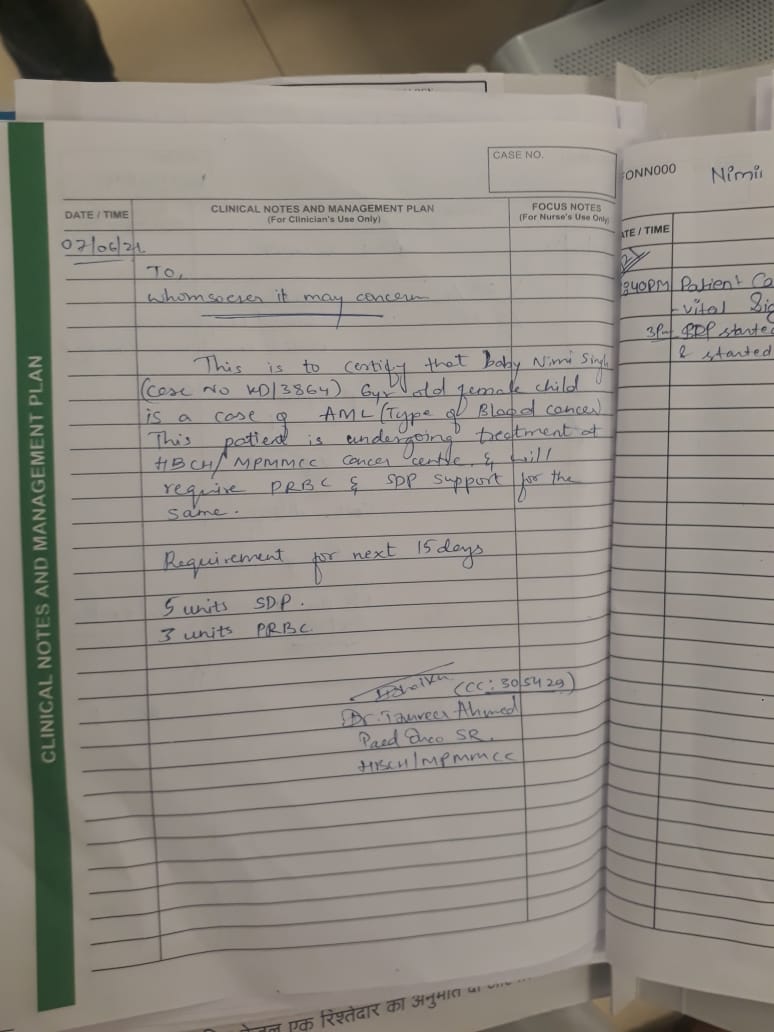 CASE NO.
DATE / TIME
CLINICAL NOTES AND MANAGEMENT PLAN
(For Clinician's Use Only)
FOCUS NOTES
(For Nurse's Use Only)
07/06/21
To,
whomsoever it may concern
This is to certify that baby Nimi Singh
(Case No KD/3864) 6yr old female child
is a case of AML (Type of Blood cancer)
This patient is undergoing treatment at
HBCH/MPMMCC cancer centre. & will
require PRBC & SDP support for the
same.
Requirement for next 15 days
5 units SDP.
3 units PRBC
(CC: 305429)
Dr. Tanveer Ahmed
Paed Onco SR.
HBCH/MPMMCC
CLINICAL NOTES AND MANAGEMENT PLAN
ONN000
Nimi
ATE / TIME
:40PM Patient Co
- vital Sig
3PM SDP starte
& started
एक रिश्तेदार का अनुमति